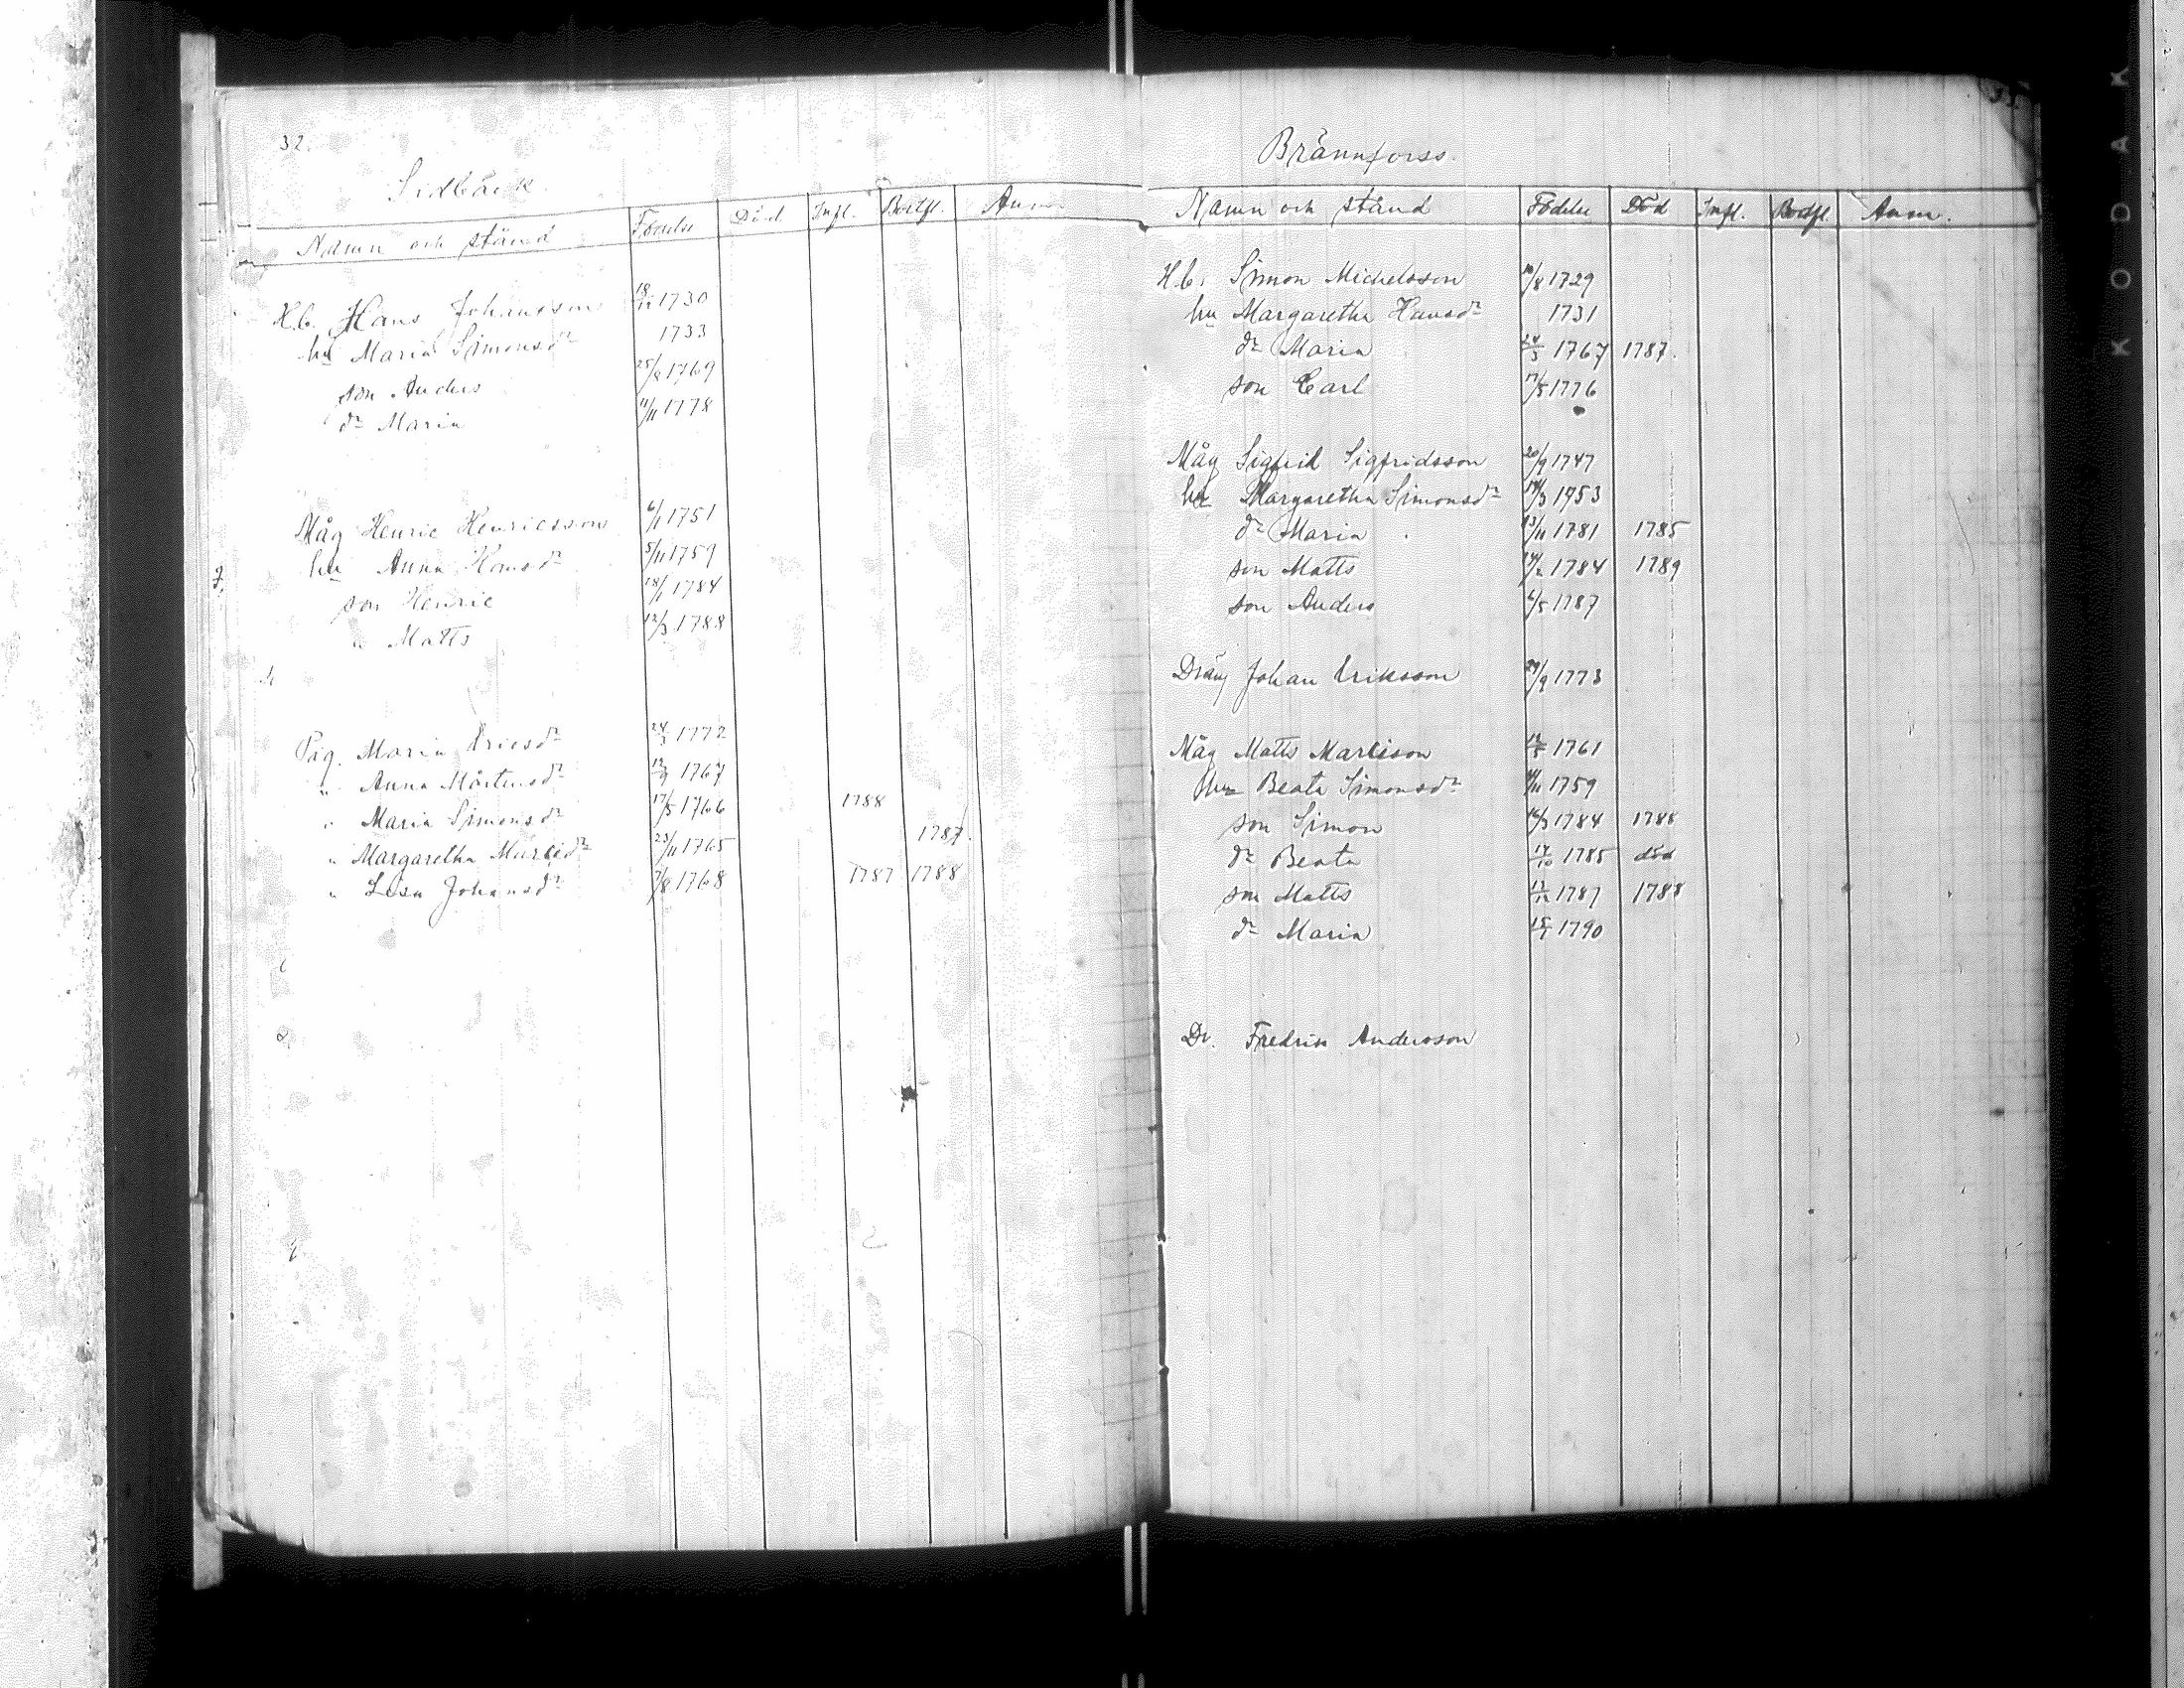 32.
Sidbäck.
Namn och stånd Födelse Död Infl. Bortfl. Anm.
H.b. Hans Johansson 18/12 1730
hu Maria Simonsdr 1733
son Anders 25/8 1769
dr Maria 11/11 1778
Måg Henric Henricsson 6/1 1751
hu Anna Hansdr 5/11 1759
son Henric 28/1 1784
" Matts 12/3 1788
Pig. Maria Ericsdr 24/3 1772
" Anna Mårtensdr 12/9 1767
" Maria Simonsdr 17/5 1766 1788
" Margaretha Marcidr 23/11 1765 1787.
" Lisa Johansdr 7/8 1768 1787 1788
Brännforss.
Namn och stånd Födelse Död Infl. Bortfl. Anm.
H.b. Simon Michelsson 10/8 1729
hu Margaretha Hansdr 1731
dr Maria 24/3 1767 1787.
son Carl 17/5 1776
Måg Sigfrid Sigfridsson 20/9 1747
hu Margaretha Simonsdr 14/3 1753
dr Maria 13/11 1781 1785
son Matts 1784 1789
son Anders 6/5 1787
Dräng Johan Eriksson 29/9 1773
Måg Matts Marcison 12/5 1761
hu Beata Simonsdr 1759
son Simon 16/3 1784 1788
dr Beata 17/10 1785 död
son Matts 13/12 1787 1788
dr Maria 1790
Dr. Fredrik Andersson
KODAK